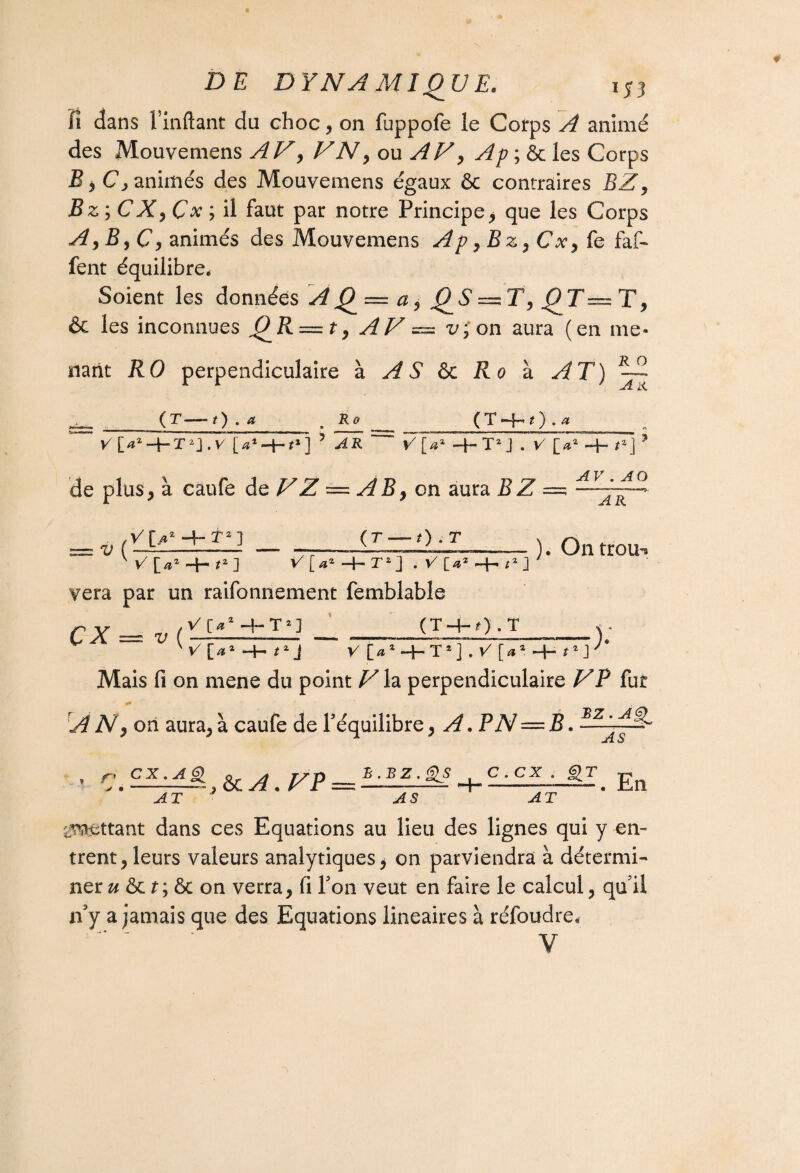 DE DYNAMIQUE. 153
ſi dans l'inſtant du choc, on ſuppoſe le Corps A animé
des Mouvemens AV, VN, ou AV, Ap ; & les Corps
B, C, animés des Mouvemens égaux & contraires BZ,
Bz ; CX, Cx ; il faut par notre Principe, que les Corps
A, B, C, animés des Mouvemens Ap, Bz, Cx, ſe faſ-
ſent équilibre.
Soient les données AQ = a, QS = T, QT = T,
& les inconnues QR = t, AV = v; on aura (en me-
nant RO perpendiculaire à AS & Ro à AT) RO/AR
= (T — t) . a / √[a² + T²] . √[a² + t²] , Ro/AR = (T + t) . a / √[a² + T²] . √[a² + t²] ,
de plus, à cauſe de VZ = AB, on aura BZ = AV . AO / AR
= v ( √[a² + T²] / √[a² + t²] — (T — t) . T / √[a² + T²] . √[a² + t²] ). On trou-
vera par un raiſonnement ſemblable
CX = v ( √[a² + T²] / √[a² + t²] — (T + t) . T / √[a² + T²] . √[a² + t²] ).
Mais ſi on mene du point V la perpendiculaire VP ſur
AN, on aura, à cauſe de l'équilibre, A . PN = B . BZ . AQ / AS
, C . CX . AQ / AT , & A . VP = B . BZ . QS / AS + C . CX . QT / AT . En
mettant dans ces Equations au lieu des lignes qui y en-
trent, leurs valeurs analytiques, on parviendra à détermi-
ner u & t ; & on verra, ſi l'on veut en faire le calcul, qu'il
n'y a jamais que des Equations lineaires à réſoudre.
V